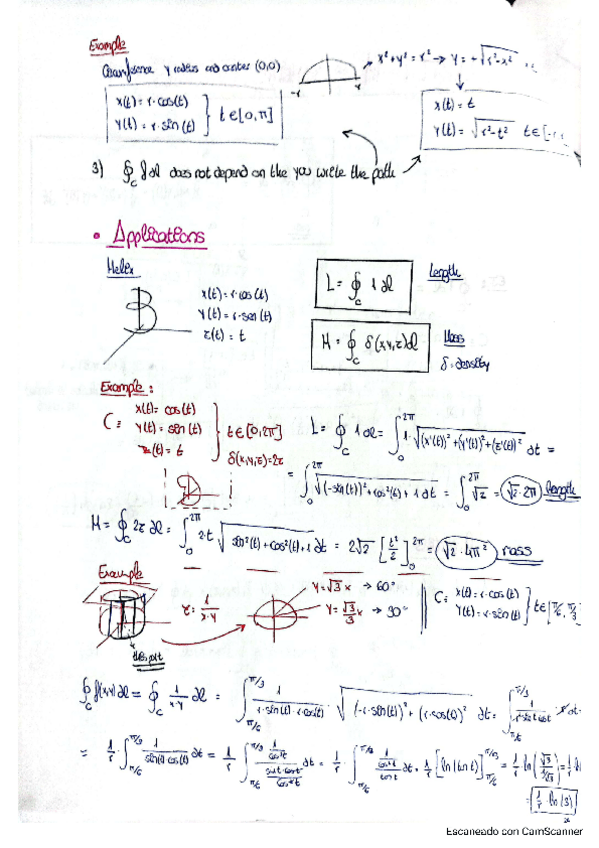 Example
Circunference r radius and center (0,0)
x²+y²=r² → y=+√r²-x²
-r r
x(t)=r·cos(t)
y(t)=r·sin(t) } t∈[0,π]
x(t)=t
y(t)=√r²-t² t∈[-r
3) ∮_C f dl does not depend on the you write the path
• Applications
Helix
x(t)=r·cos(t)
y(t)=r·sen(t)
z(t)=t
L=∮_C 1 dl Length
M=∮_C δ(x,y,z)dl Mass
δ=density
Example:
C≡ x(t)=cos(t)
y(t)=sen(t)
z(t)=t
} t∈[0,2π]
δ(x,y,z)=2z
L=∮_C 1 dl = ∫_0^2π 1·√(x'(t))²+(y'(t))²+(z'(t))² dt =
= ∫_0^2π √(-sen(t))²+cos²(t)+1 dt = ∫_0^2π √2 = √2·2π length
M=∮_C 2z dl = ∫_0^2π 2·t √sen²(t)+cos²(t)+1 dt = 2√2 [t²/2]_0^2π = √2·4π² mass
Example
z=1/x·y
y=√3x → 60°
y=√3/3 x → 30°
C: x(t)=r·cos(t)
y(t)=r·sin(t) } t∈[π/6, π/3
this part
∮_C f(x,y)dl = ∮_C 1/x·y dl = ∫_π/6^π/3 1/r·sin(t)·r·cos(t) √(-r·sin(t))²+(r·cos(t))² dt = ∫_π/6^π/3
= 1/r · ∫_π/6^π/3 1/sin(t)·cos(t) dt = 1/r ∫_π/6^π/3 1/cos²t / sint·cost/cos²t dt = 1/r · ∫_π/6^π/3 1/cos²t / tant dt = 1/r [ln(tant)]_π/6^π/3 = 1/r ln(√3/1/√3) =
= 1/r · ln(3)
Escaneado con CamScanner